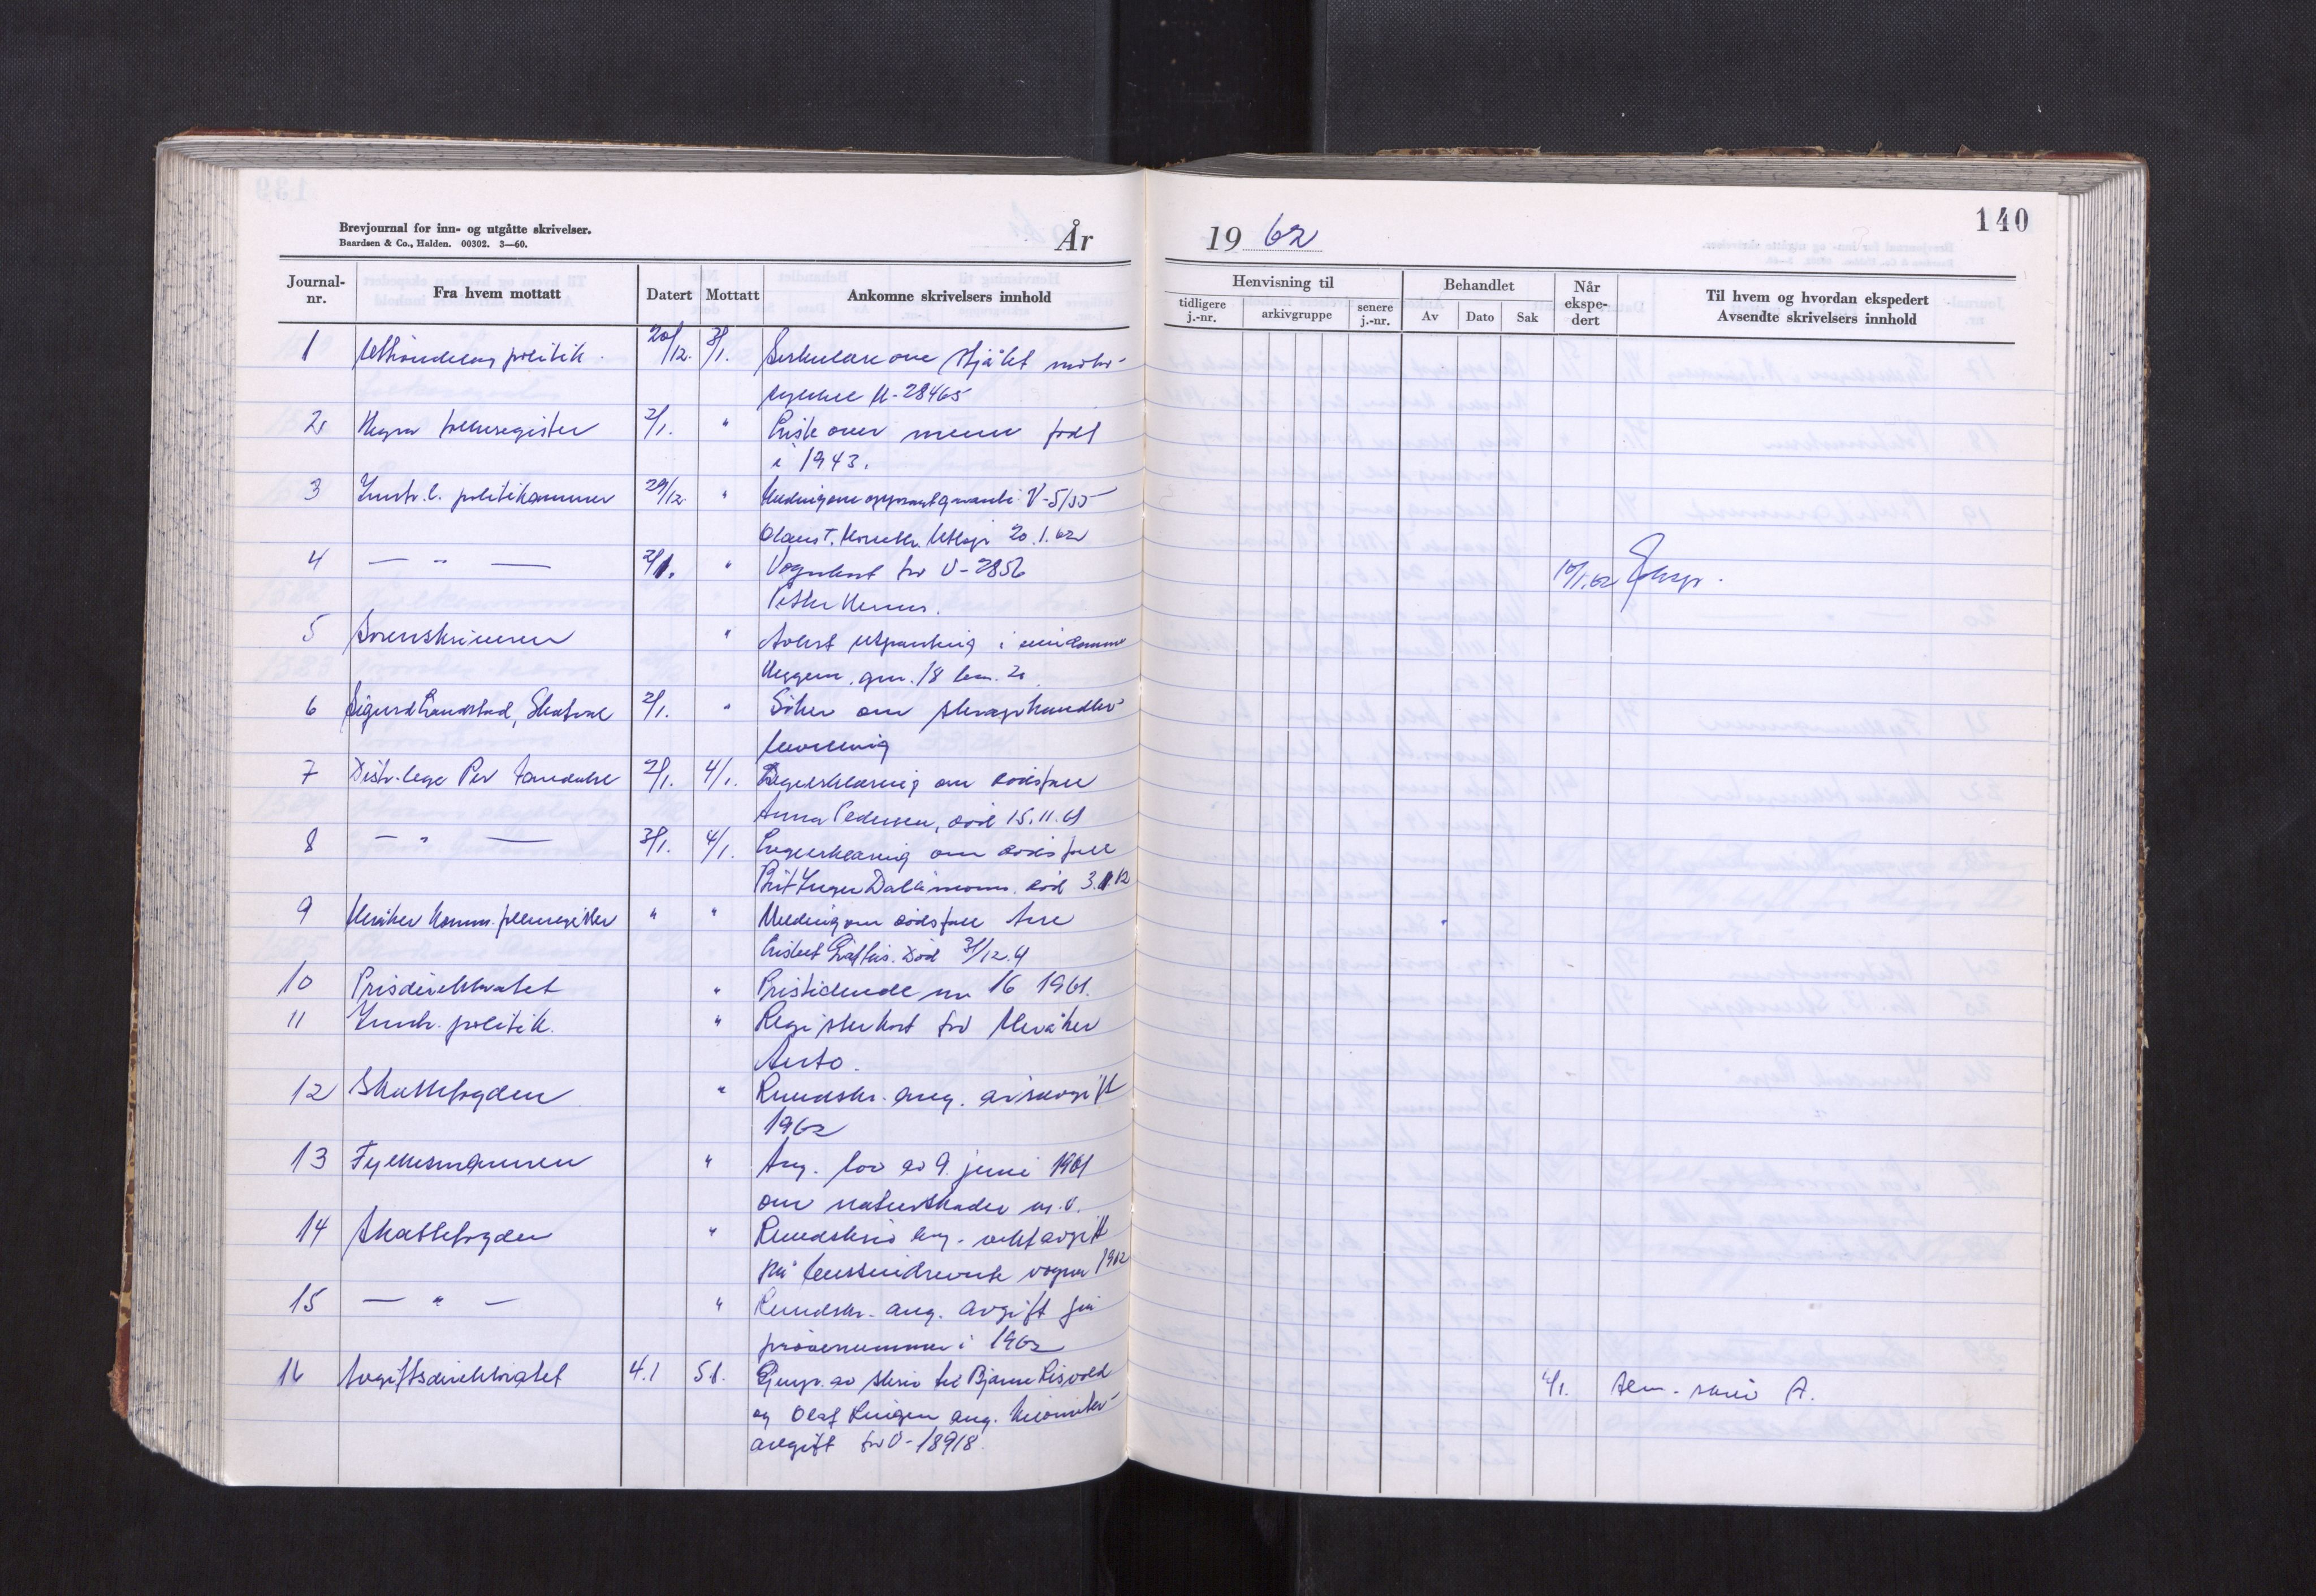 140
Brevjournal for inn- og utgåtte skrivelser.
Baardsen & Co., Halden. 00302. 3—60.
År 19 62
Journal-nr. Fra hvem mottatt Datert Mottatt Ankomne skrivelsers innhold
Henvisning til Behandlet Når ekspe-dert Til hvem og hvordan ekspedert Avsendte skrivelsers innhold
tidligere j.-nr. arkivgruppe senere j.-nr. Av Dato Sak
1 politik. 20/12. 3/1. Sirkulære om stjålet motor-
28465
2 Hegra folkeregister 2/1. " Liste over menn født
i 1943.
3 Inntr. l. politikammer 29/12. " Melding om opphørt garanti V-5135
Olaus T. 20.1.62
4 — " — 2/1. " Vognkort for U-2856 10/1.62 Eksp.
Petter
5 Sorenskriveren " Avlyst utpanting i eiendommen
gnr. 18 bnr. 2
6 Sigurd Skatval 2/1. " Søker om skraphandler-
bevilling
7 Distr.lege Per 2/1. 4/1. Legeerklæring om dødsfall
Anna Pedersen, død 15.11.61
8 — " — 3/1. 4/1. Legeerklæring om dødsfall
Brit Inger død 3.1.62
9 Meråker komm. folkeregister " " Melding om dødsfall
Død 31/12.61
10 Prisdirektoratet " Pristidende nr 16 1961.
11 Inntr. politik. " Registerkort for Meråker
Auto.
12 Skattefogden " Rundskr. ang. årsavgift
1962
13 Fylkesmannen " Ang. lov av 9. juni 1961
om naturskader m.v.
14 Skattefogden " Rundskriv ang. vektavgift
på bensindrevne vogner 1962
15 — " — " Rundskr. ang. avgift på
prøvenummer i 1962
16 Avgiftsdirektoratet 4.1 5.1. Gjenp. av skriv til Bjarne
og Olaf ang. kilometer-
avgift for U-18918.